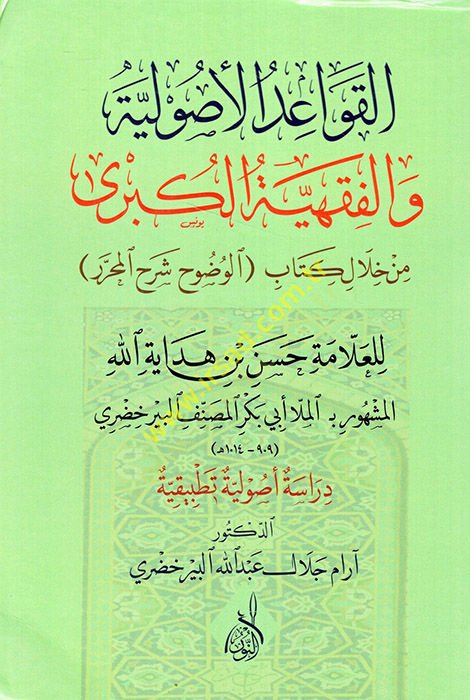 القَوَاعِدُ الأُصُولِيَّة
وَالفِقْهِيَّةُ الكُبْرَى
يونس
مِنْ خِلَالِ كِتَابِ (الوُضُوح شَرْح المُحَرَّر)
لِلعَلَّامَةِ حَسَن بْن هِدَايَةِ اللّه
المشهور بـ الملا أبي بكر المصنف البير خضري
(٩٠٩ - ١٠١٤هـ)
دِرَاسَةٌ أُصُولِيَّةٌ تَطْبِيقِيَّةٌ
الدّكتُور
آرام جلال عبد الله البير خضري